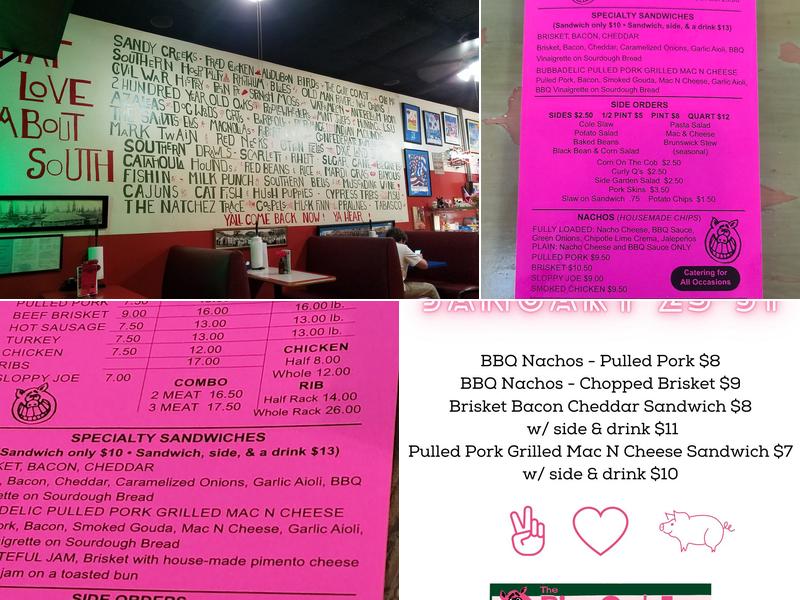 WHAT
LOVE
ABOUT
SOUTH
SANDY CREEKS · FRIED CHICKEN · AUDUBON BIRDS · THE GULF COAST
SOUTHERN HOSPITALITY · RHYTHM BLUES · OLD MAN RIVER
CIVIL WAR HISTORY · SPANISH MOSS
2 HUNDRED YEAR OLD OAKS
AZALEAS · DOGWOODS · GRITS
THE SAINTS · ELVIS · MAGNOLIAS
MARK TWAIN · RED NECKS
SOUTHERN DRAWLS · SCARLETT · RHETT
CATAHOULA HOUND · RED BEANS & RICE · MARDI GRAS · BAYOUS
FISHIN · MILK PUNCH · SOUTHERN BELLS · MUSCADINE WINE
CAJUNS · CATFISH · HUSH PUPPIES · CYPRESS TREES · LSU
THE NATCHEZ TRACE · HUCK FINN · PRALINES · TABASCO
YALL COME BACK NOW! YA HEAR!
SPECIALTY SANDWICHES
(Sandwich only $10 • Sandwich, side, & drink $13)
BRISKET, BACON, CHEDDAR
Brisket, Bacon, Cheddar, Caramelized Onions, Garlic Aioli, BBQ
Vinaigrette on Sourdough Bread
BUBBADELIC PULLED PORK GRILLED MAC N CHEESE
Pulled Pork, Bacon, Smoked Gouda, Mac N Cheese, Garlic Aioli,
BBQ Vinaigrette on Sourdough Bread
SIDE ORDERS
SIDES $2.50 1/2 PINT $5 PINT $8 QUART $12
Cole Slaw Pasta Salad
Potato Salad Mac & Cheese
Baked Beans Brunswick Stew
Black Bean & Corn Salad (seasonal)
Corn On The Cob $2.50
Curly Q's $2.50
Side Garden Salad $2.50
Pork Skins $3.50
Slaw on Sandwich .75 Potato Chips $1.50
NACHOS (HOUSEMADE CHIPS)
FULLY LOADED: Nacho Cheese, BBQ Sauce,
Green Onions, Chipotle Lime Crema, Jalepeños
PLAIN: Nacho Cheese and BBQ Sauce ONLY
PULLED PORK $9.50
BRISKET $10.50
SLOPPY JOE $9.00
SMOKED CHICKEN $9.50
Catering for
All Occasions
PULLED PORK 7.50
BEEF BRISKET 9.00 16.00 16.00 lb.
HOT SAUSAGE 7.50 13.00 13.00 lb.
TURKEY 7.50 13.00 13.00 lb.
CHICKEN 7.50 12.00
RIBS 17.00
SLOPPY JOE 7.00
COMBO
2 MEAT 16.50
3 MEAT 17.50
CHICKEN
Half 8.00
Whole 12.00
RIB
Half Rack 14.00
Whole Rack 26.00
SPECIALTY SANDWICHES
(Sandwich only $10 • Sandwich, side, & a drink $13)
KET, BACON, CHEDDAR
, Bacon, Cheddar, Caramelized Onions, Garlic Aioli, BBQ
ette on Sourdough Bread
DELIC PULLED PORK GRILLED MAC N CHEESE
ork, Bacon, Smoked Gouda, Mac N Cheese, Garlic Aioli,
aigrette on Sourdough Bread
TEFUL JAM, Brisket with house-made pimento cheese
jam on a toasted bun
SIDE ORDERS
BBQ Nachos - Pulled Pork $8
BBQ Nachos - Chopped Brisket $9
Brisket Bacon Cheddar Sandwich $8
w/ side & drink $11
Pulled Pork Grilled Mac N Cheese Sandwich $7
w/ side & drink $10
The